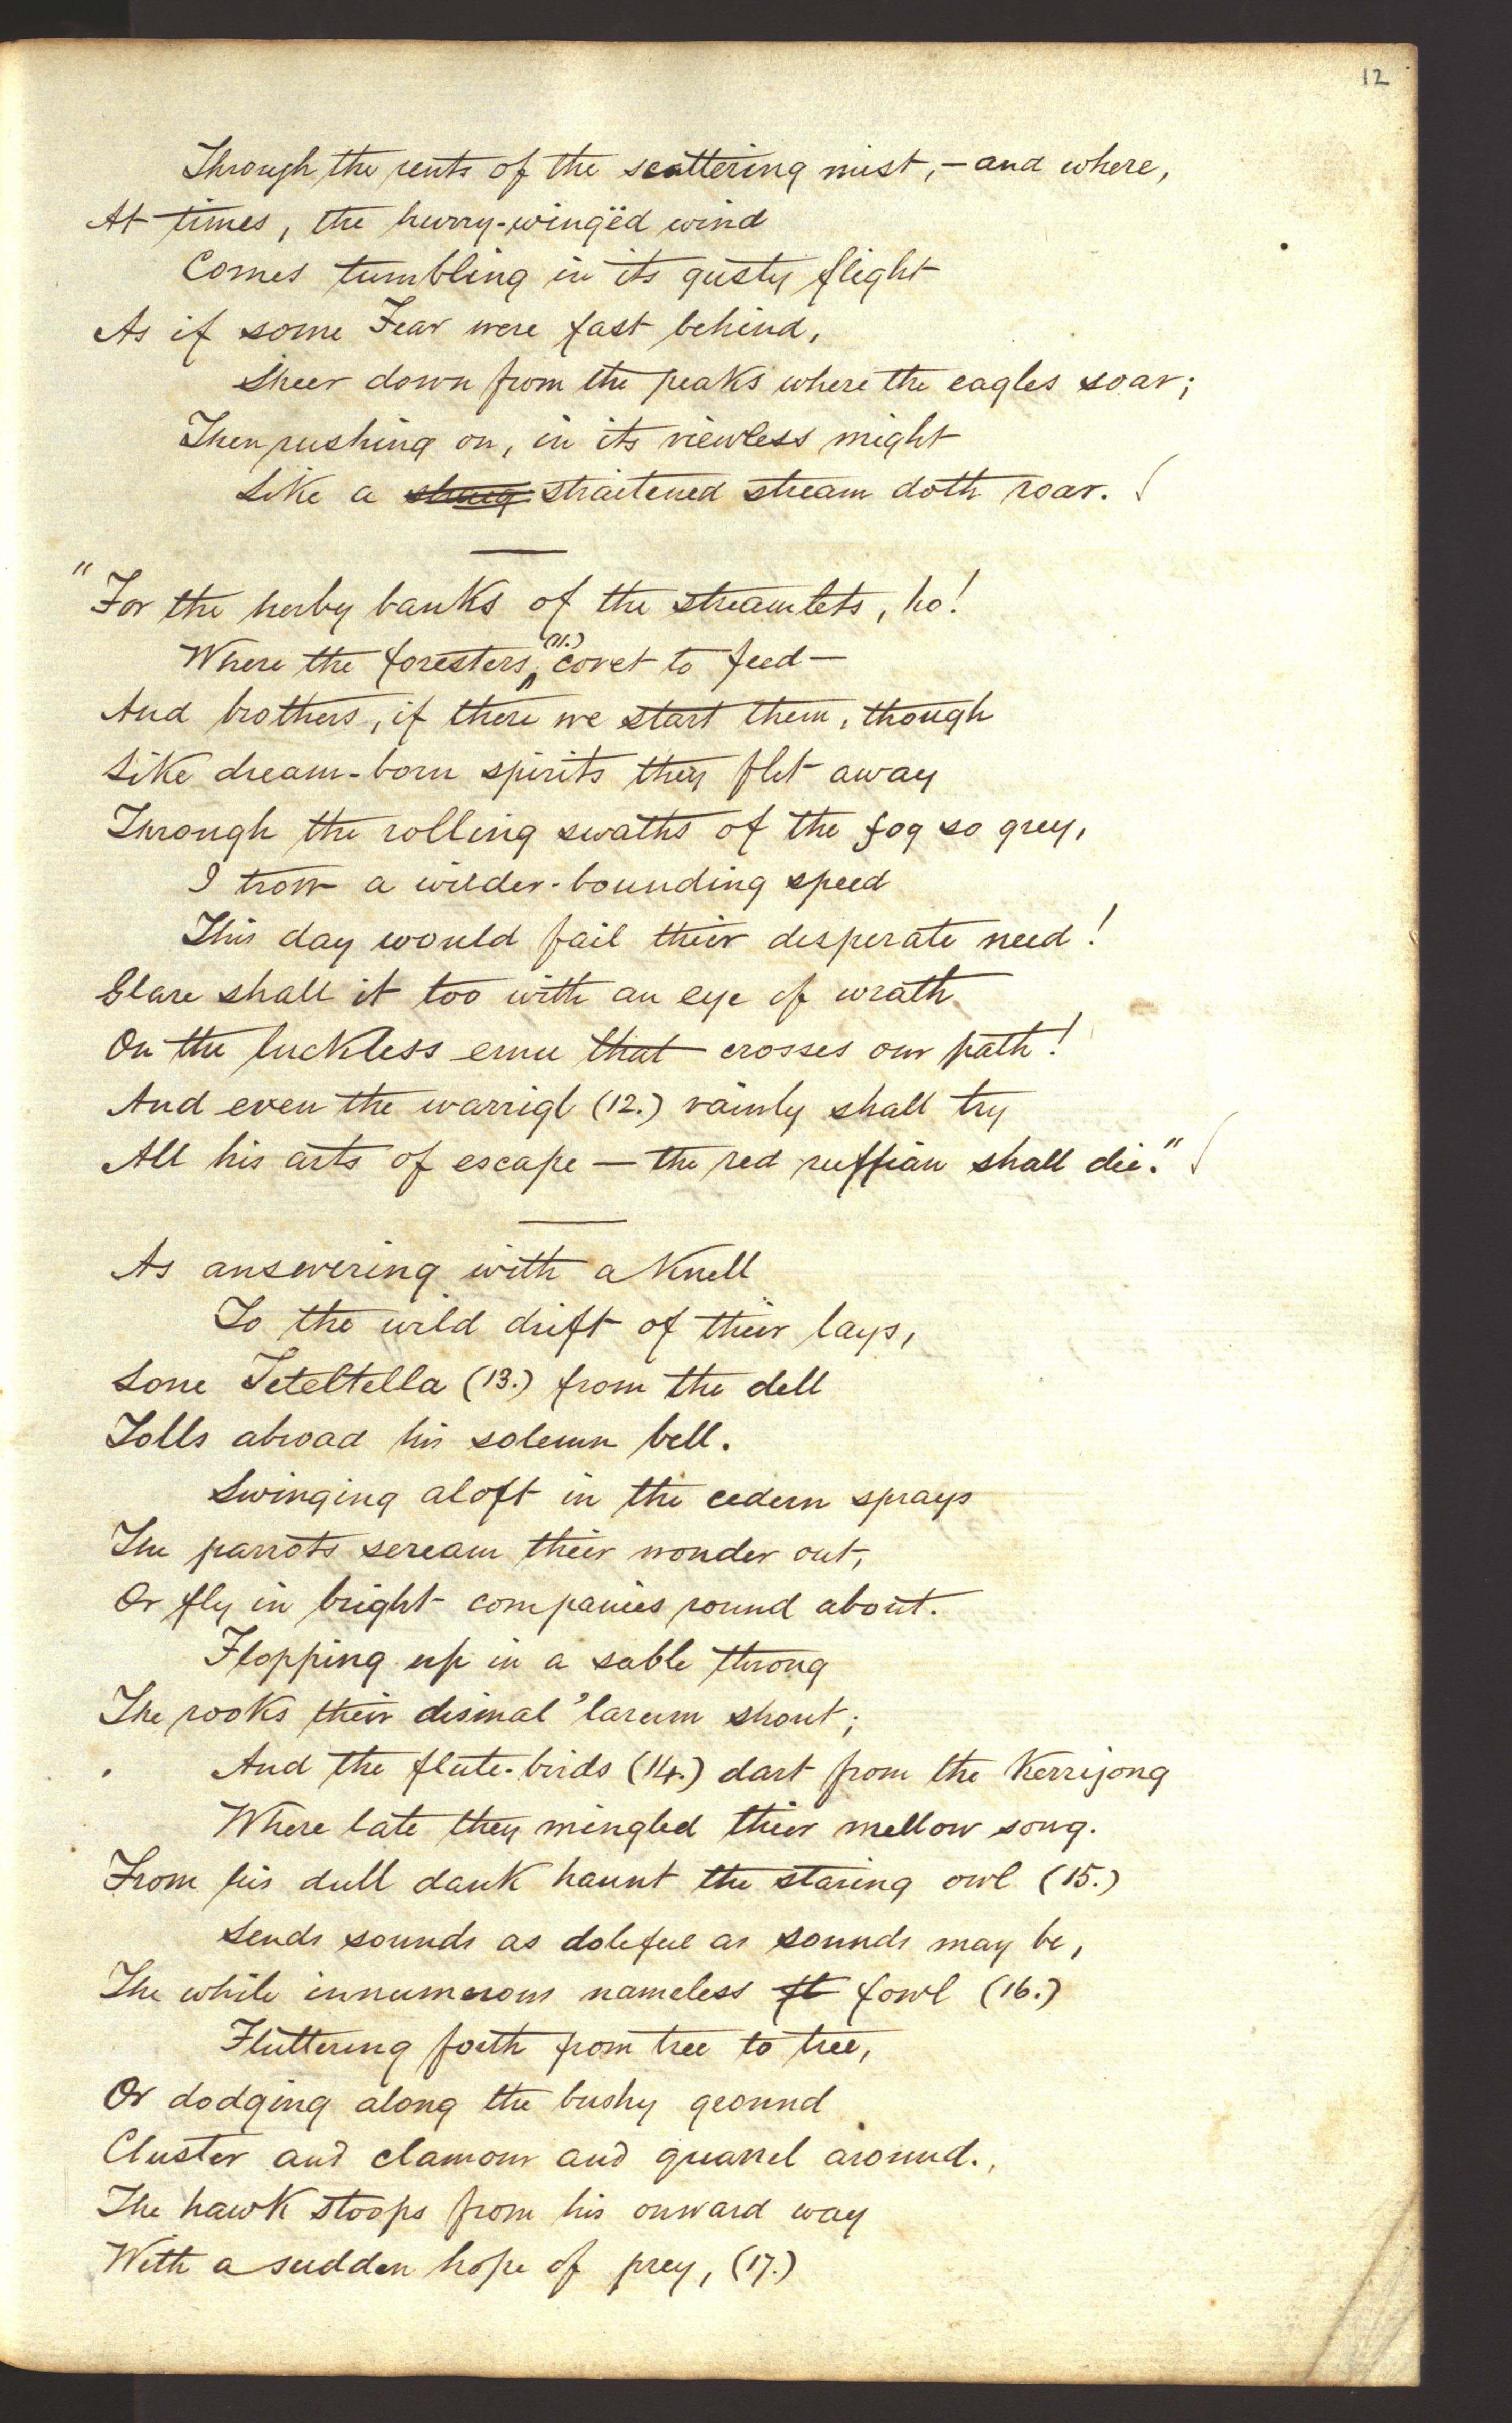 12
Through the rents of the scattering mist, – and where,
At times, the hurry-wingëd wind
Comes tumbling in its gusty flight
As if some Fear were fast behind,
Sheer down from the peaks where the eagles soar;
Then rushing on, in its viewless might
Like a straitened stream doth roar.
"For the herby banks of the streamlets, ho!
Where the foresters (11.) covet to feed—
And brothers, if there we start them, though
Like dream-born spirits they flet away
Through the rolling swaths of the fog so grey,
I trow a wilder-bounding speed
This day would fail their desperate need!
Glare shall it too with an eye of wrath
On the luckless emu that crosses our path!
And even the warrigl (12.) vainly shall try
All his arts of escape — the red ruffian shall die."
As answering with a knell
To the wild drift of their lays,
Lone Teteltella (13.) from the dell
Tolls abroad his solemn bell.
Swinging aloft in the cedern sprays
The parrots scream their wonder out,
Or fly in bright companies round about.
Flopping up in a sable throng
The rooks their dismal 'larum shout;
And the flute-birds (14.) dart from the Kerrijong
Where late they mingled their mellow song.
From his dull dank haunt the staring owl (15.)
Sends sounds as doleful as sounds may be,
The while innumerous nameless fowl (16.)
Fluttering forth from tree to tree,
Or dodging along the bushy ground
Cluster and clamour and quarrel around.,
The hawk stoops from his onward way
With a sudden hope of prey, (17.)